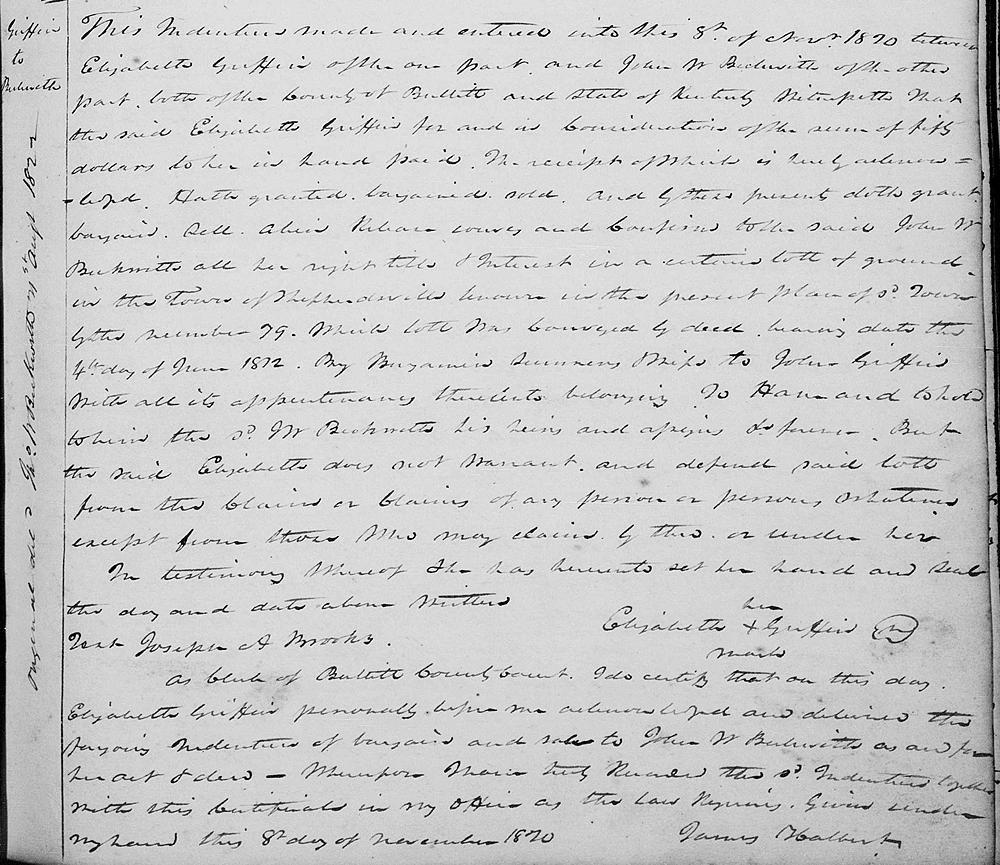 Griffin
to
Beckwith
Original deld to Jno W Beckwith 1st Augt 1822
This Indenture made and entered into this 8th of Novr 1820 between
Elizabeth Griffin of the one part and John W Beckwith of the other
part both of the County of Bullitt and State of Kentucky Witnesseth that
the said Elizabeth Griffin for and in Consideration of the sum of fifty
dollars to her in hand paid. The receipt of which is hereby acknow=
-ledged. Hath granted bargained sold. and by these presents doth grant
bargain. Sell. alien Release convey and Confirm to the said John W
Beckwith all her right title & Interest in a certain lott of ground
in the Town of Shepherdsville known in the present plan of sd. Town
by the number 79. Which lott was Conveyed by deed bearing date the
4th day of June 1812. By Benjamin Summers & wife to John Griffin
With all its appurtenances thereunto belonging To Have and to hold
to him the sd. J W Beckwith his heirs and assigns forever. But
the said Elizabeth does not warrant. and defend said lott
from the Claim or Claims of any person or persons whatever
except from those who may claim by the. or under her
In testimony Whereof She has hereunto set her hand and Seal
the day and date above Written
her
Elizabeth X Griffin
mark
Test Joseph A Brooks.
As Clerk of Bullitt County Court. I do certify that on this day
Elizabeth Griffin personally before me acknowledged and delivered the
foregoing Indenture of bargain and sale to John W Beckwith as and for
her act & deed – Whereupon I have truly Recorded the sd. Indenture together
with this Certificate in my office as the law Requires. Given under
my hand this 8th day of November 1820
James Halbert